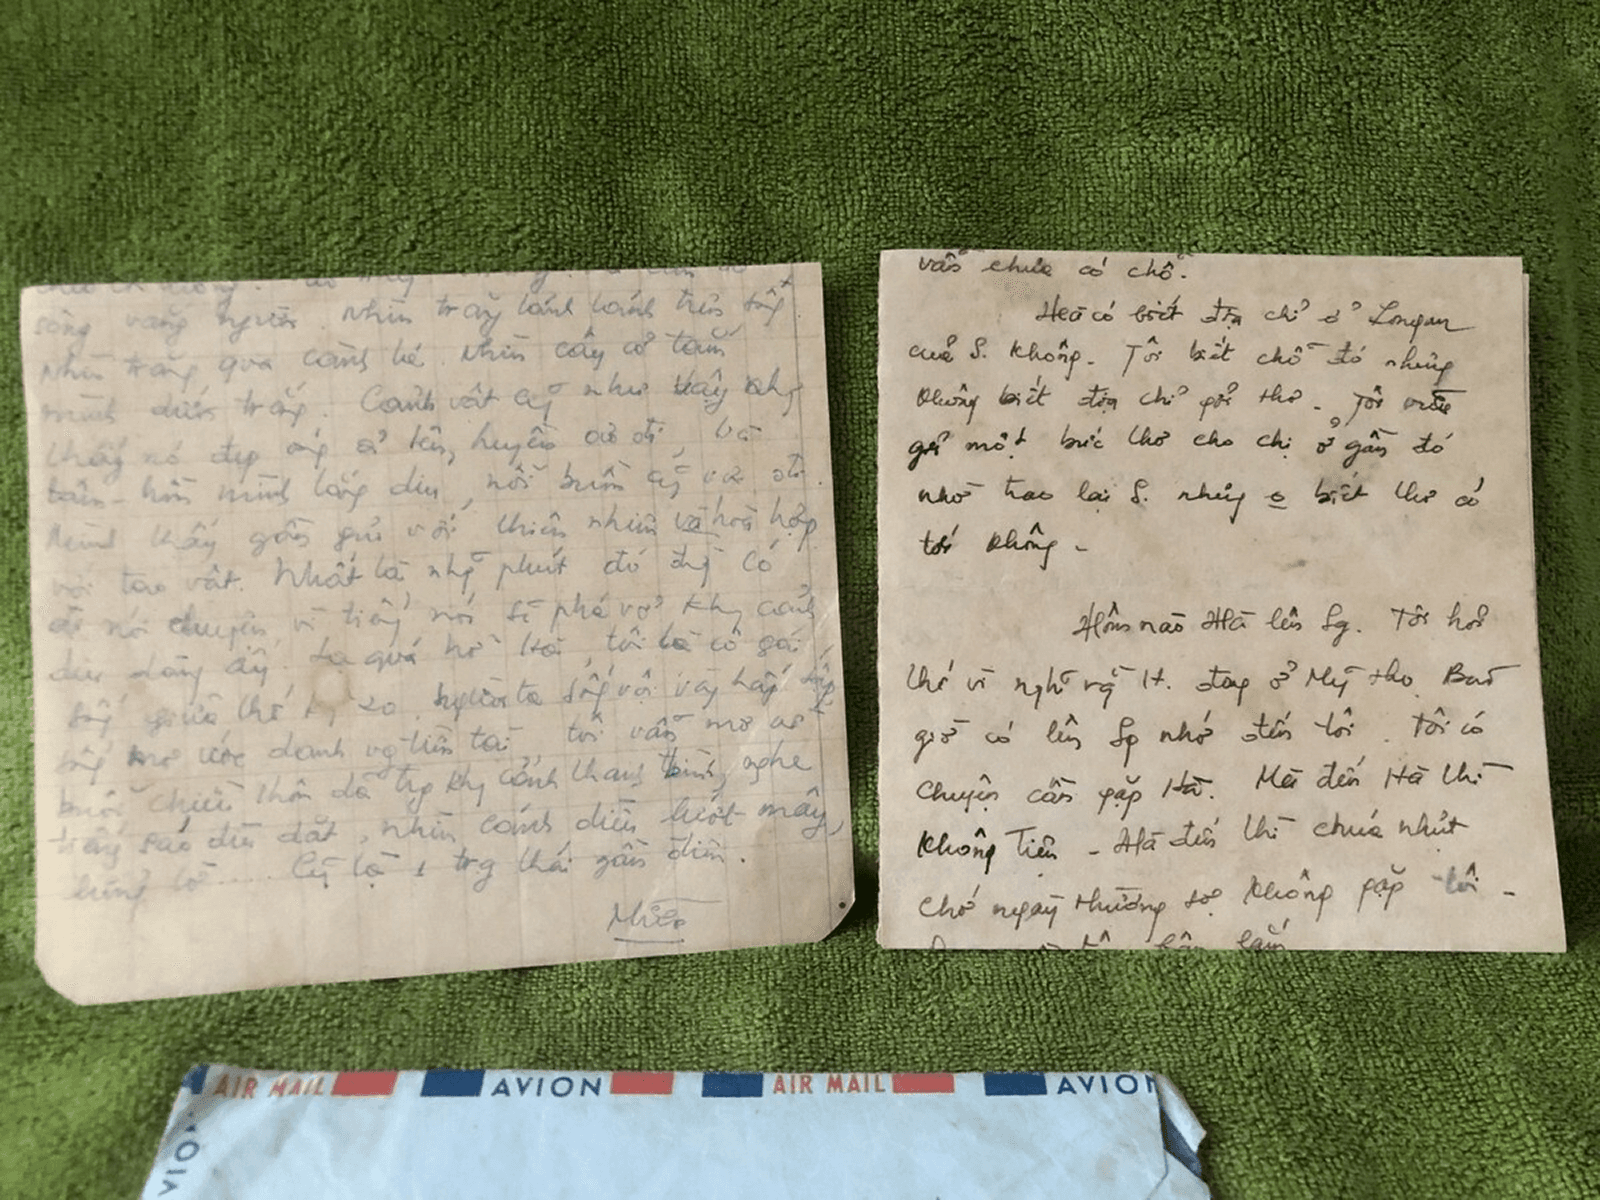 sông vắng người. Nhìn trăng lánh lánh trên sông
Nhìn trăng qua cành lá. Nhìn cây cỏ tắm
mình dưới trăng. Cảnh vật cũ như vậy
thấy nó đẹp huyền
tâm hồn mình lắng dịu, nỗi buồn
Mình thấy gần gũi với thiên nhiên và hoà hợp
với tạo vật. Nhất là phút đó đừng có
ai nói chuyện vì tiếng nói sẽ phá vỡ khg cảnh
dịu dàng ấy. Lạ quá hở Hà, tôi là cô gái
sống giữa thế kỷ 20. Người ta sống vội vàng hấp tấp
sống mơ ước danh vọng tiền tài, tôi vẫn mơ về
buổi chiều thôn dã trg khg cảnh thanh bình, nghe
tiếng sáo dìu dặt, nhìn cánh diều lướt mây,
lững lờ..... Cũg lạ 1 trg thái gần điên.
vẫn chưa có chỗ.
Hà có biết địa chỉ ở Longan
của S. không. Tôi biết chỗ đó nhưng
không biết địa chỉ gởi thơ. Tôi vừa
gởi một bức thơ cho chị ở gần đó
nhờ trao lại S. nhưng o biết thơ có
tới không -
Hôm nào Hà lên Sg. Tôi hỏi
thế vì nghĩ rằng H. đang ở Mỹ tho. Bao
giờ có lên Sg nhớ đến tôi. Tôi có
chuyện cần gặp Hà. Mà đến Hà thì
không tiện - Hà đến thì chúa nhựt
chớ ngày thường sợ không gặp tôi -
AIR MAIL AVION AIR MAIL AVION